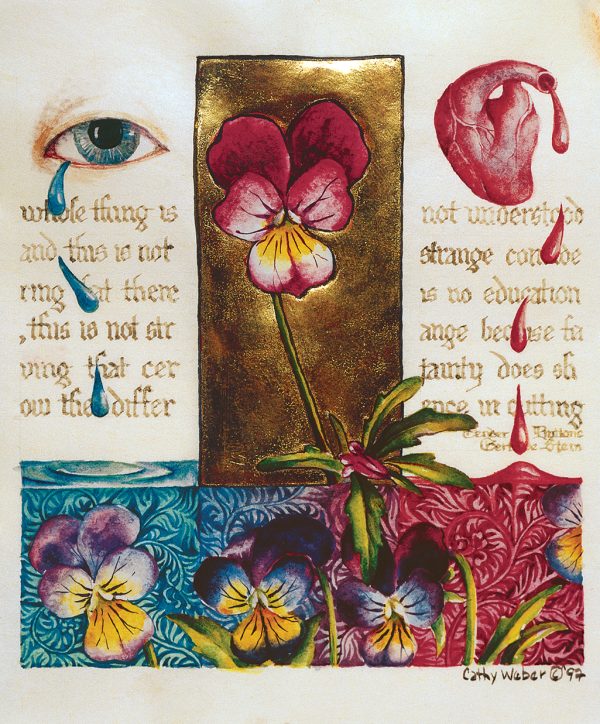 whole thing is not understood
and this is not strange conside
ring that there is no education
, this is not str ange because ha
ving that cer tainly does sh
ow the differ ence in cutting
Tender Buttons
Gertrude Stein
Cathy Weber © '97